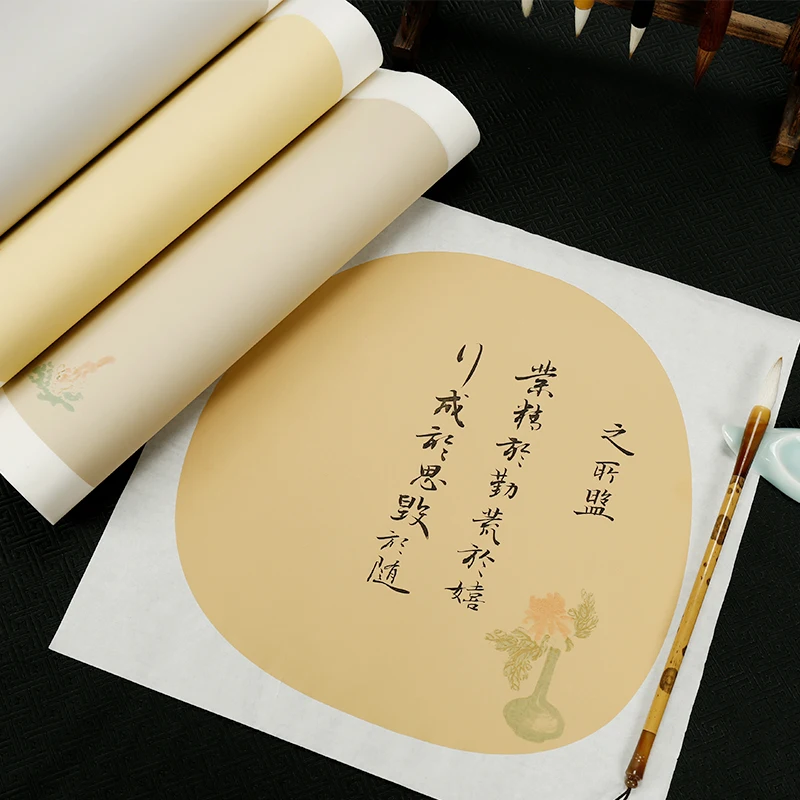 之所
業精於勤荒於嬉
行成於思毀於随